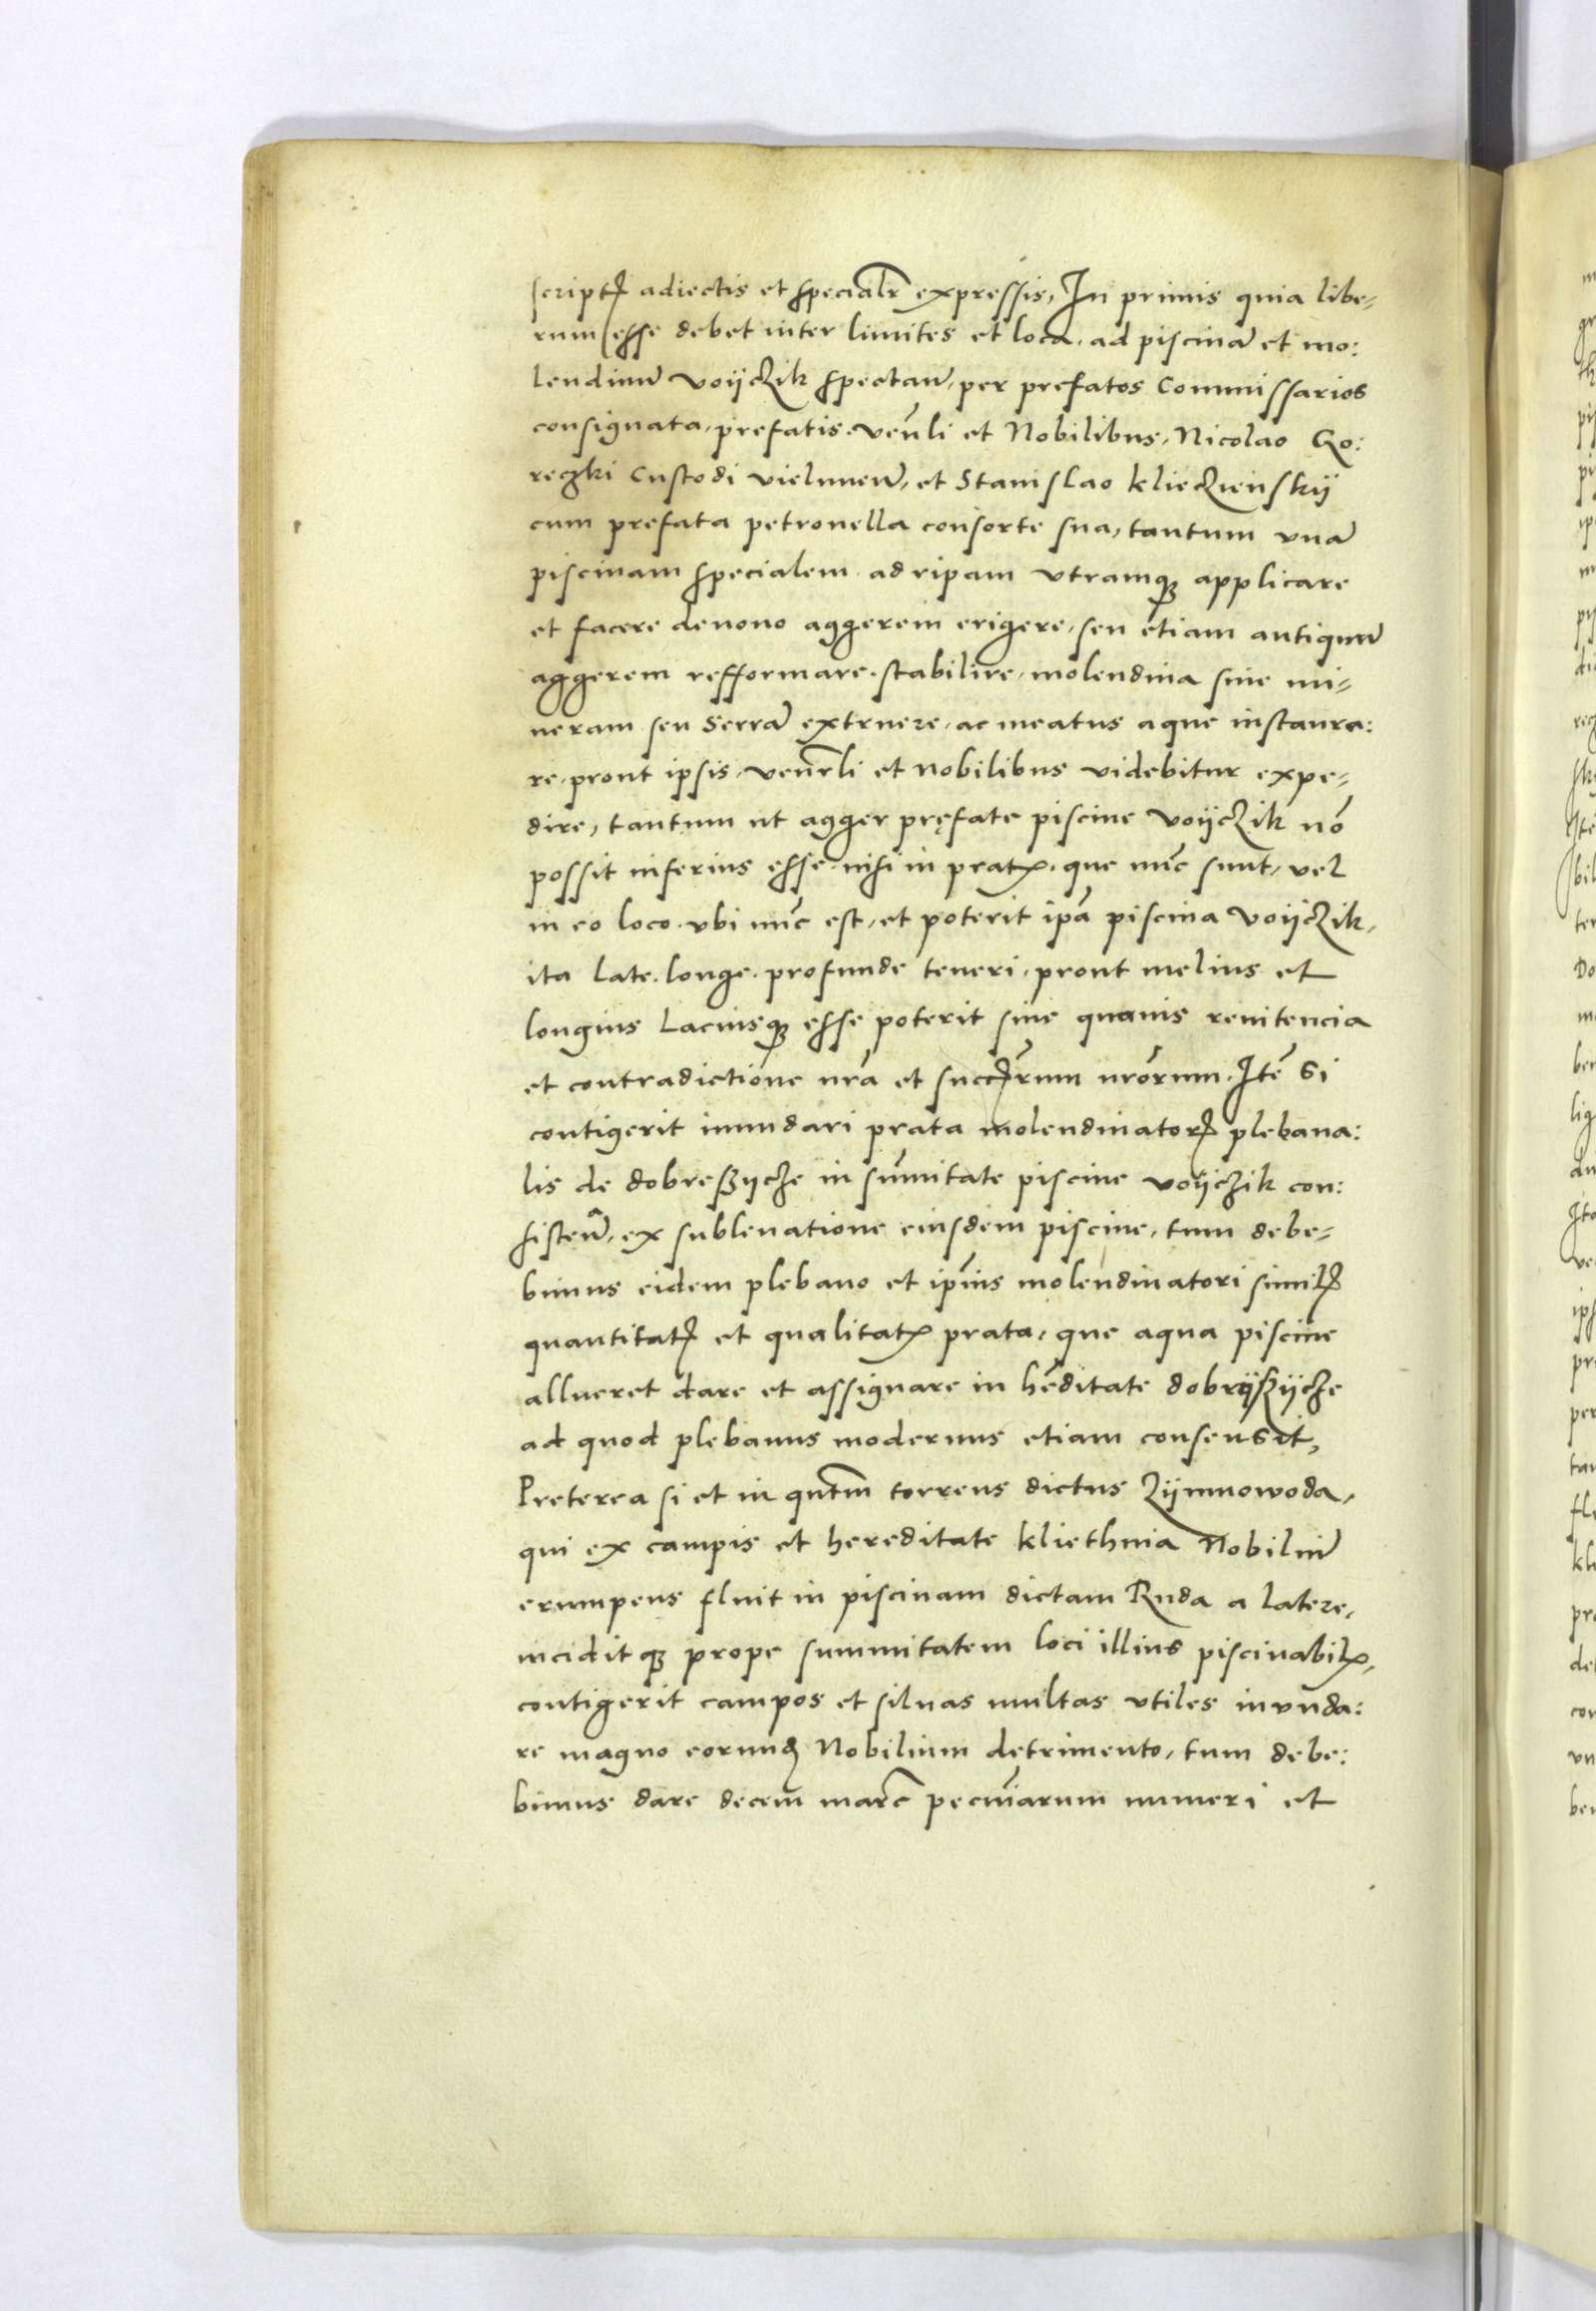 scriptꝭ adiectis et specialr̃ expressis, In primis quia libe-
rum esse debet inter limites et loca, ad piscinã et mo:
lendinũ voijczik spectañ, per prefatos Commissarios
consignata, prefatis veñli et Nobilibus, Nicolao Go:
reczki Custodi vieluneñ, et Stanislao klieczienskij
cum prefata petronella consorte sua, tantum vnã
piscinam specialem ad ripam vtramqꝫ applicare
et facere denouo aggerem erigere, seu etiam antiquũ
aggerem refformare, stabilire, molendina siue mi-
neram seu serrã extruere, ac meatus aque instaura:
re, prout ipsis, veñrli et nobilibus videbitur expe-
dire, tantum ut agger pręfate piscine voijczik nõ
possit inferius esse nisi in pratꝭ, que nũc sunt, vel
in eo loco vbi nũc est, et poterit ip̃a piscina voijczik,
ita late, longe, profunde teneri, prout melius et
longius Laciusqꝫ esse poterit sine quauis renitencia
et contradictione nr̃a et succꝭr̃um nr̃orum. Itẽ si
contigerit inundari prata molendinatorꝭ plebana:
lis de dobreszijcze in sum̃itate piscine voijczik con:
sisteñ, ex subleuatione eiusdem piscine, tum debe-
bimus eidem plebano et ip̃ius molendinatori similꝭ
quantitatꝭ et qualitatꝭ prata, que aqua piscine
allueret dare et assignare in hẽditate dobrijszijcze
ad quod plebanus modernus etiam consensit,
Preterea si et in qñtm torrens dictus Zijmnowoda,
qui ex campis et hereditate kliethnia Nobiliũ
erumpens fluit in piscinam dictam Ruda a latere,
inciditqꝫ prope summitatem loci illius piscinabilꝭ,
contigerit campos et siluas multas vtiles invnda:
re magno eorundẽ Nobilium detrimento, tum debe:
bimus dare decem marc̃ pecuniarum numeri et